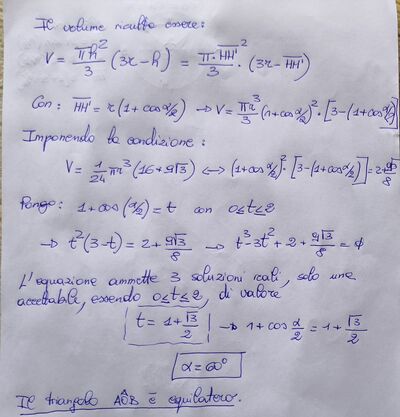 Il volume risulta essere:
V = πh²/3 (3r-h) = π·HH'²/3 · (3r-HH')
Con: HH' = r(1+cos α/2) → V = πr³/3 (1+cos α/2)² · [3-(1+cos α/2)]
Imponendo la condizione:
V = 1/24 πr³(16+9√3) ⟺ (1+cos α/2)² · [3-(1+cos α/2)] = 2+9√3/8
Pongo: 1+cos(α/2)=t con 0≤t≤2
→ t²(3-t) = 2+9√3/8 → t³-3t²+2+9√3/8 = 0
L'equazione ammette 3 soluzioni reali, solo una
accettabile, essendo 0≤t≤2, di valore
t = 1+√3/2 → 1+cos α/2 = 1+√3/2
α=60°
Il triangolo AÔB è equilatero.